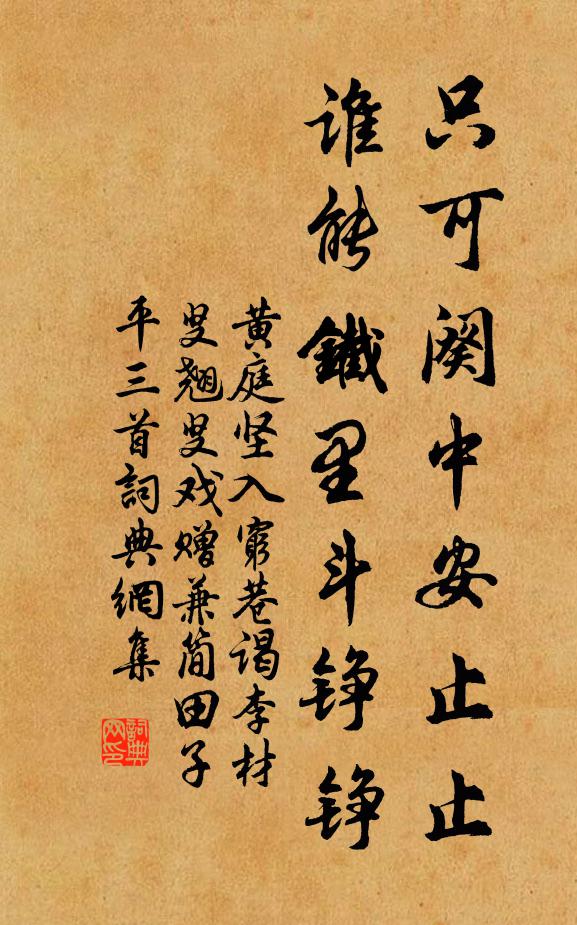 只可阕中安止止
谁能鐵里斗铮铮
黄庭坚入窮巷谒李材
叟翘叟戏赠兼简田子
平三首詞典網集
詞典网印